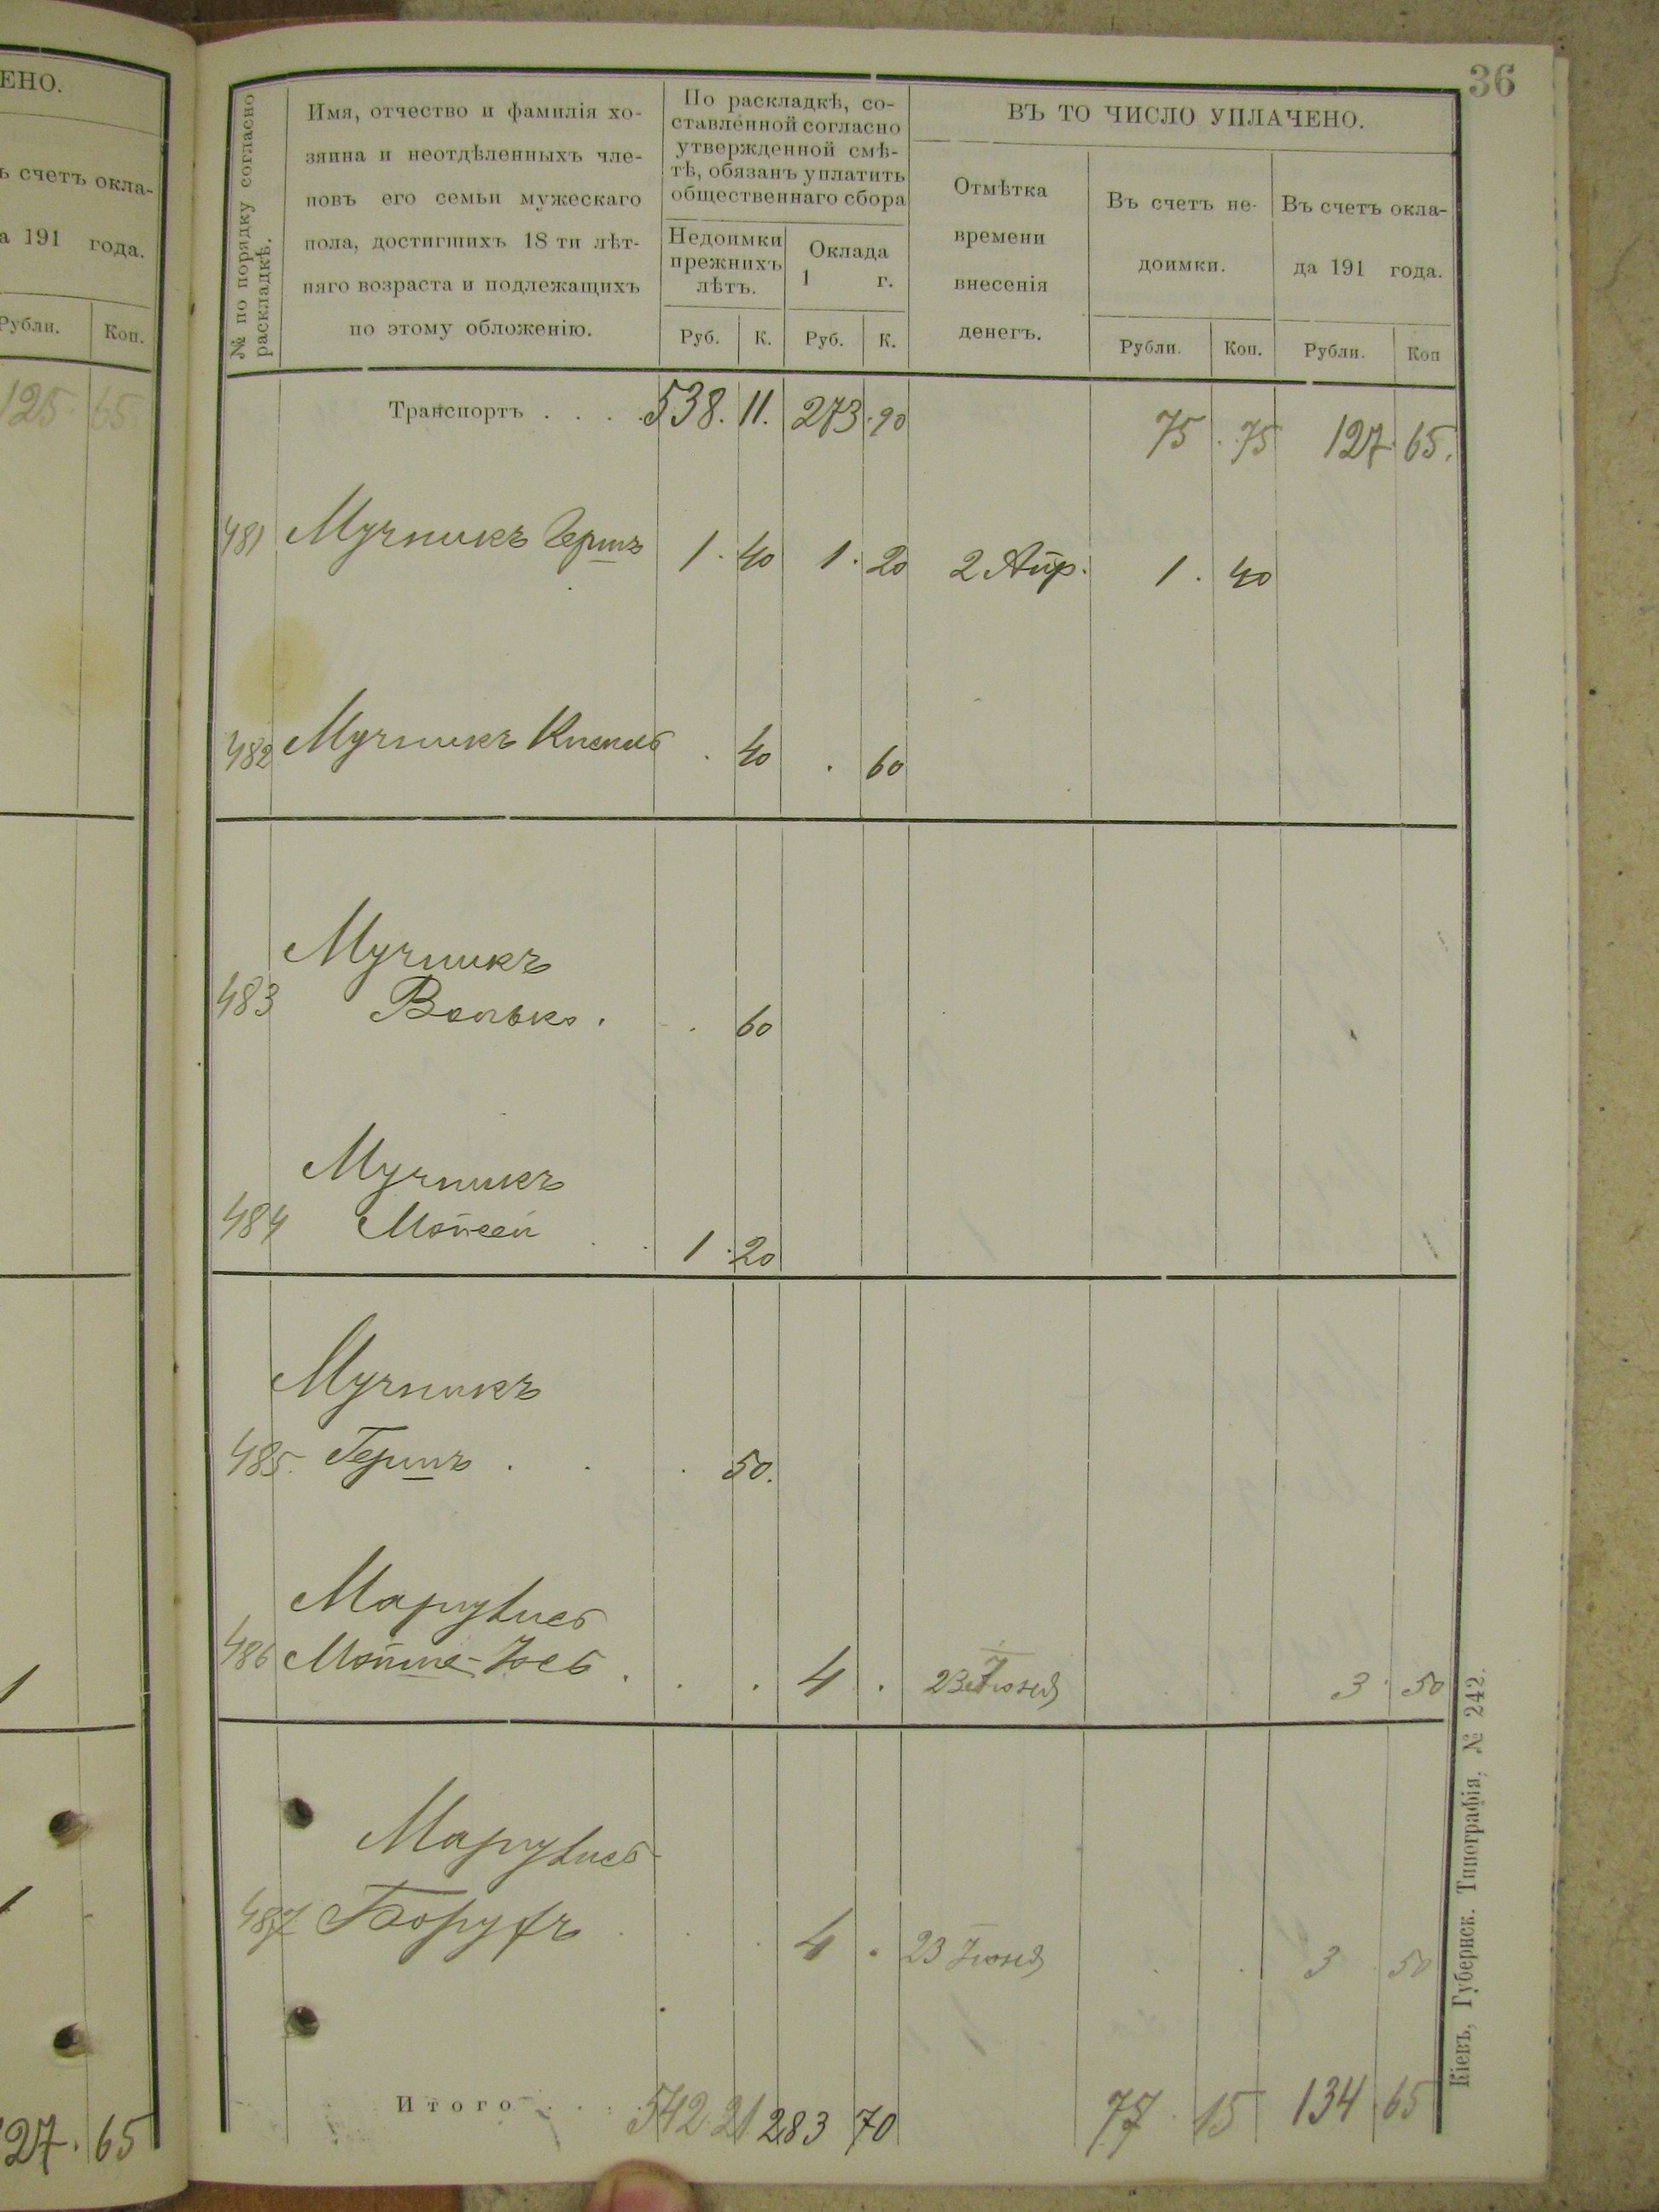 ЕНО.
ъ счетъ окла-
а 191 года.
Рубли. Коп.
125 65
1
1
127. 65
36
№ по порядку согласно
раскладкѣ.
Имя, отчество и фамилія хо-
зяина и неотдѣленныхъ чле-
новъ его семьи мужескаго
пола, достигшихъ 18 ти лѣт-
няго возраста и подлежащихъ
по этому обложенію.
По раскладкѣ, со-
ставленной согласно
утвержденной смѣ-
тѣ, обязанъ уплатить
общественнаго сбора
Недоимки
прежнихъ
лѣтъ.
Оклада
1 г.
Руб. К. Руб. К.
ВЪ ТО ЧИСЛО УПЛАЧЕНО.
Отмѣтка
времени
внесенія
денегъ.
Въ счетъ не-
доимки.
Въ счетъ окла-
да 191 года.
Рубли. Коп. Рубли. Коп
Транспортъ . . . . 538. 11. 273. 90 75 . 75 127. 65.
481 Мучникъ Гершъ 1. 40 1. 20 2 Апр. 1. 40
482 Мучникъ Кисиль . 40 . 60
Мучникъ
483 Волько . . 60
Мучникъ
484 Мойсей . . 1. 20
Мучникъ
485. Гершъ . . . 50.
Марувисъ
486 Мойше-Іосъ . . . 4 . 23 Іюня . . 3. 50
Марувисъ
487 Борухъ . . . 4 . 23 Іюня . . 3. 50
Итого . . . . 542. 21 283 70 77. 15 134. 65
Кіевъ, Губернск. Типографія, № 242.